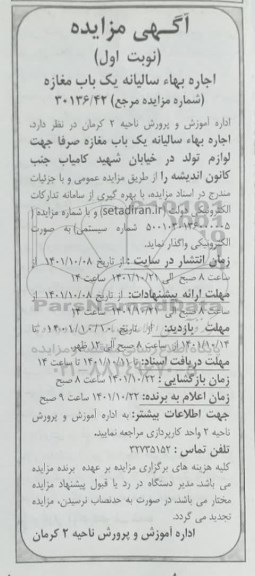 آگهی مزایده
(نوبت اول)
اجاره بهاء سالیانه یک باب مغازه
(شماره مزایده مرجع) ۳۰۱۳۶/۴۲
اداره آموزش و پرورش ناحیه ۲ کرمان در نظر دارد،
اجاره بهاء سالیانه یک باب مغازه صرفا جهت
لوازم تولد در خیابان شهید کامیاب جنب
کانون اندیشه را از طریق مزایده عمومی و با جزئیات
مندرج در اسناد مزایده، با بهره گیری از سامانه تدارکات
الکترونیکی دولت (setadiran.ir) و با شماره مزایده (
شماره سیستمی) به صورت
الکترونیکی واگذار نماید.
زمان انتشار در سایت : از تاریخ ۱۴۰۱/۱۰/۰۸ از
ساعت ۸ صبح الی ساعت ۱۴
مهلت ارائه پیشنهادات: از تاریخ ۱۴۰۱/۱۰/۰۸ از
ساعت ۸ صبح الی
مهلت بازدید: از تاریخ تا
۱۴۰۱/۱۰/۱۴ از ساعت ۸ صبح الی ۱۲ ظهر
مهلت دریافت اسناد: تا ساعت ۱۴
زمان بازگشایی : ۱۴۰۱/۱۰/۲۲ ساعت ۸ صبح
زمان اعلام به برنده: ۱۴۰۱/۱۰/۲۲ ساعت ۹ صبح
جهت اطلاعات بیشتر: به اداره آموزش و پرورش
ناحیه ۲ واحد کارپردازی مراجعه نمایید.
تلفن تماس : ۳۲۷۳۵۱۵۲
کلیه هزینه های برگزاری مزایده بر عهده برنده مزایده
می باشد. مدیر دستگاه در رد یا قبول پیشنهاد مزایده
مختار می باشد. در صورت به حدنصاب نرسیدن، مزایده
تجدید می گردد.
اداره آموزش و پرورش ناحیه ۲ کرمان